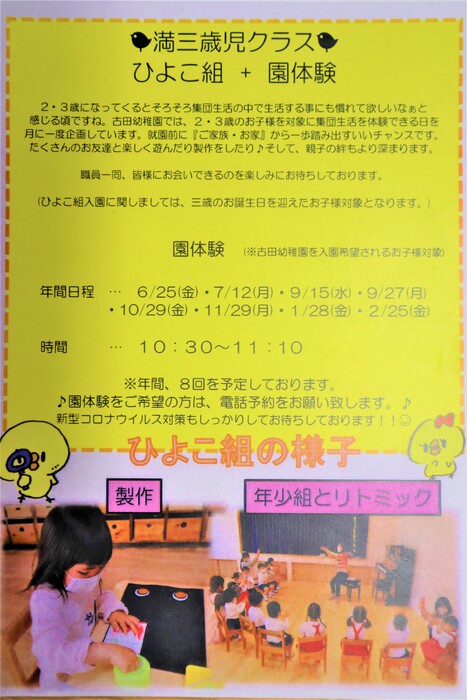 満三歳児クラス
ひよこ組 + 園体験
2・3歳になってくるとそろそろ集団生活の中で生活する事にも慣れて欲しいなぁと
感じる頃ですね。古田幼稚園では、2・3歳のお子様を対象に集団生活を体験できる日を
月に一度企画しています。就園前に『ご家族・お家』から一歩踏み出すいいチャンスです。
たくさんのお友達と楽しく遊んだり製作をしたり♪そして、親子の絆もより深まります。
職員一同、皆様にお会いできるのを楽しみにお待ちしております。
(ひよこ組入園に関しましては、三歳のお誕生日を迎えたお子様対象となります。)
園体験 (※古田幼稚園を入園希望されるお子様対象)
年間日程 … 6/25(金)・7/12(月)・9/15(水)・9/27(月)
・10/29(金)・11/29(月)・1/28(金)・2/25(金)
時間 … 10:30～11:10
※年間、8回を予定しております。
♪園体験をご希望の方は、電話予約をお願い致します。♪
新型コロナウイルス対策もしっかりしてお待ちしております!!☺
ひよこ組の様子
製作
年少組とリトミック